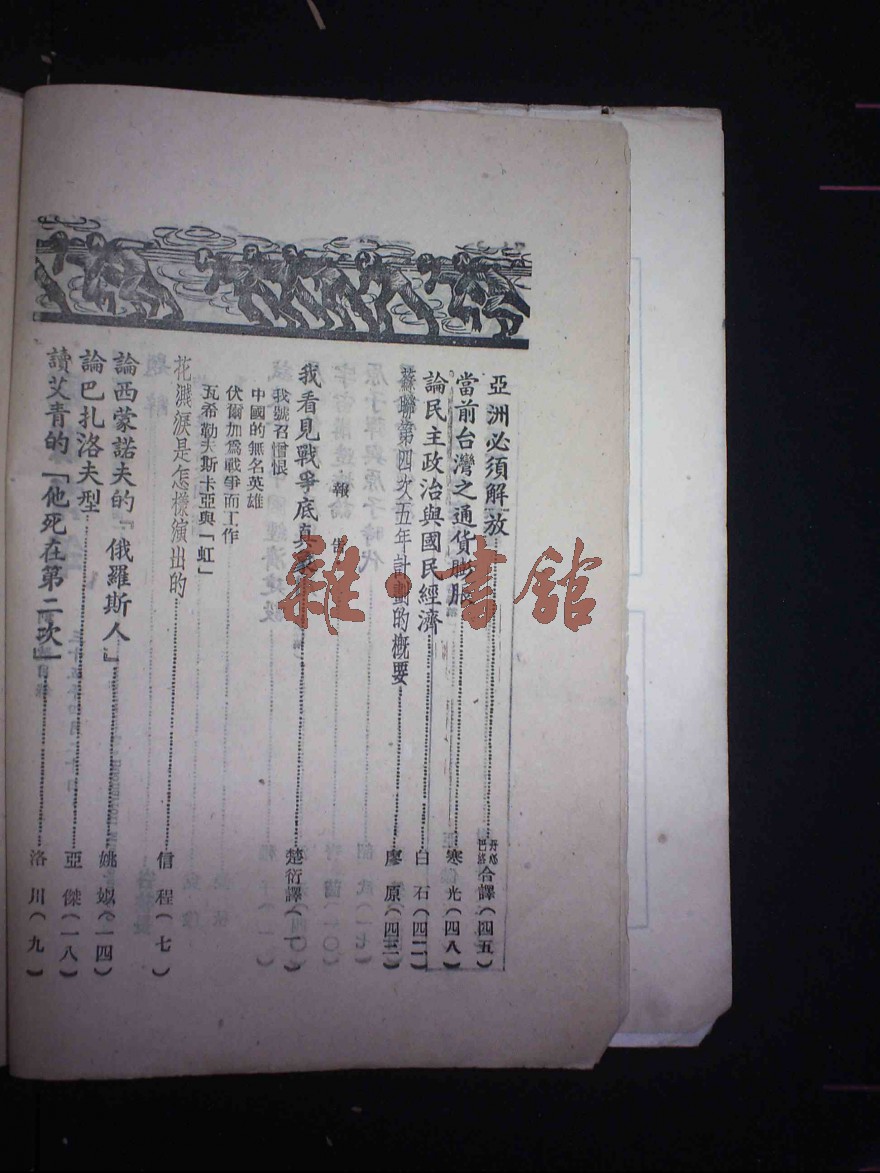 亞洲必須解放……丹尼 巴諾 合譯(四五)
當前台灣之通貨膨脹……寒光(四八)
論民主政治與國民經濟……白石(四二)
蘇聯第四次五年計劃的概要……廖原(四三)
報告
我看見戰爭底真……楚衍譯(一)
我號召憎恨
中國的無名英雄
伏爾加爲戰爭而工作
瓦希勒夫斯卡亞與「虹」
花濺淚是怎樣演出的……信程(七)
論西蒙諾夫的『俄羅斯人』……姚姒(一四)
論巴扎洛夫型……亞傑(一八)
讀艾青的「他死在第二次」……洛川(九)
雜·書館